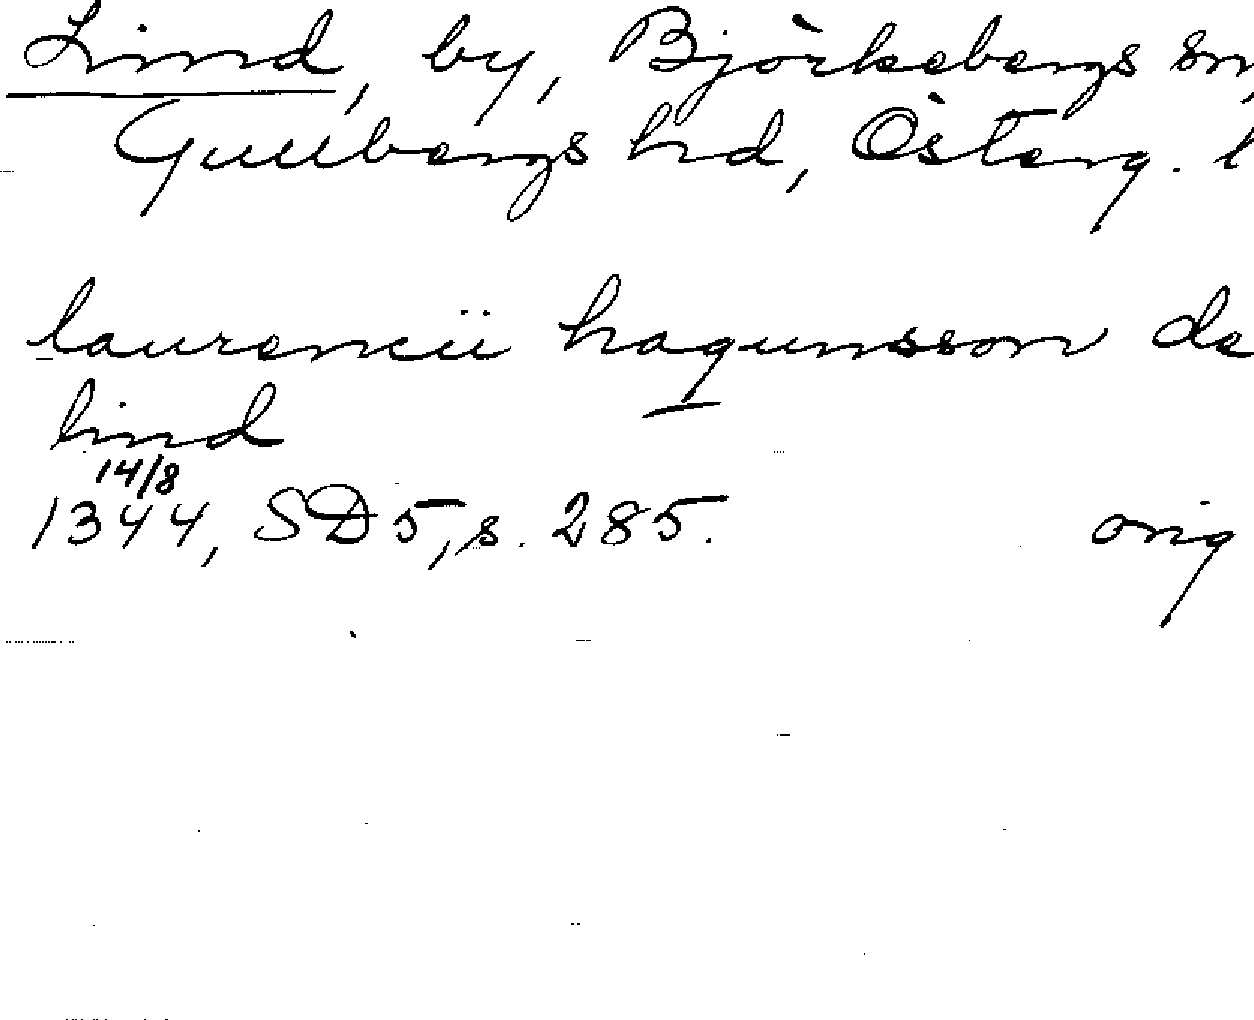 Lind, by, Björkebergs sn,
Gullbergs hd, Österg. l
laurencii haqunsson de
lind
14/8
1344, SD 5, s. 285. orig